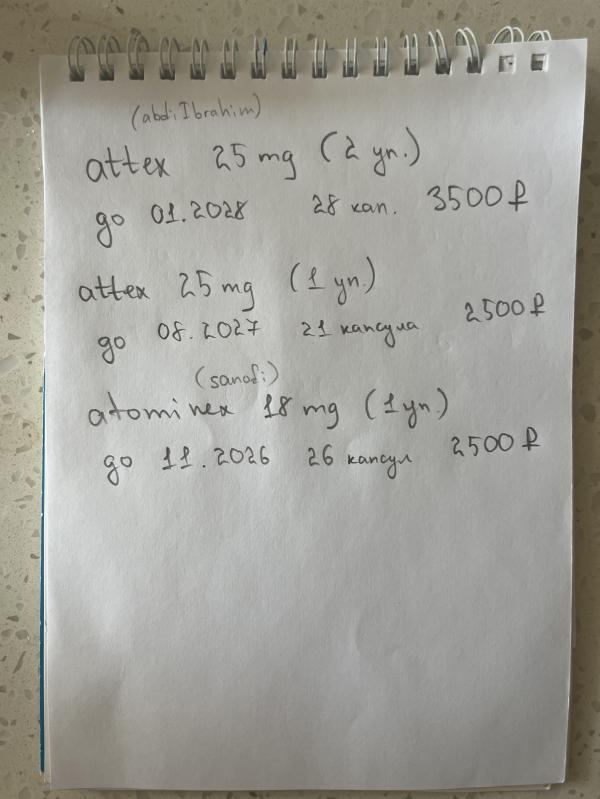 (abdi Ibrahim)
attex 25 mg (2 уп.)
до 01.2028 28 кап. 3500 ₽
attex 25 mg (1 уп.)
до 08.2027 21 капсула 2500 ₽
(sanofi)
atominex 18 mg (1 уп.)
до 11.2026 26 капсул 2500 ₽